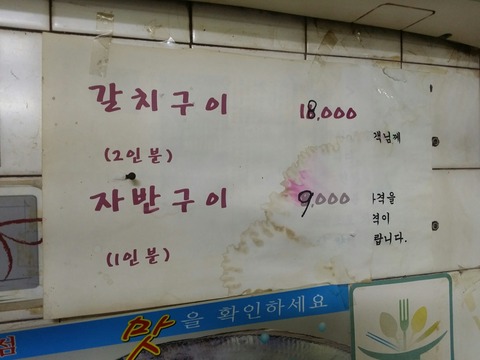 갈치구이 18,000
객님께
(2인분)
자반구이 9,000
가격을
격이
랍니다.
(1인분)
점 맛을 확인하세요